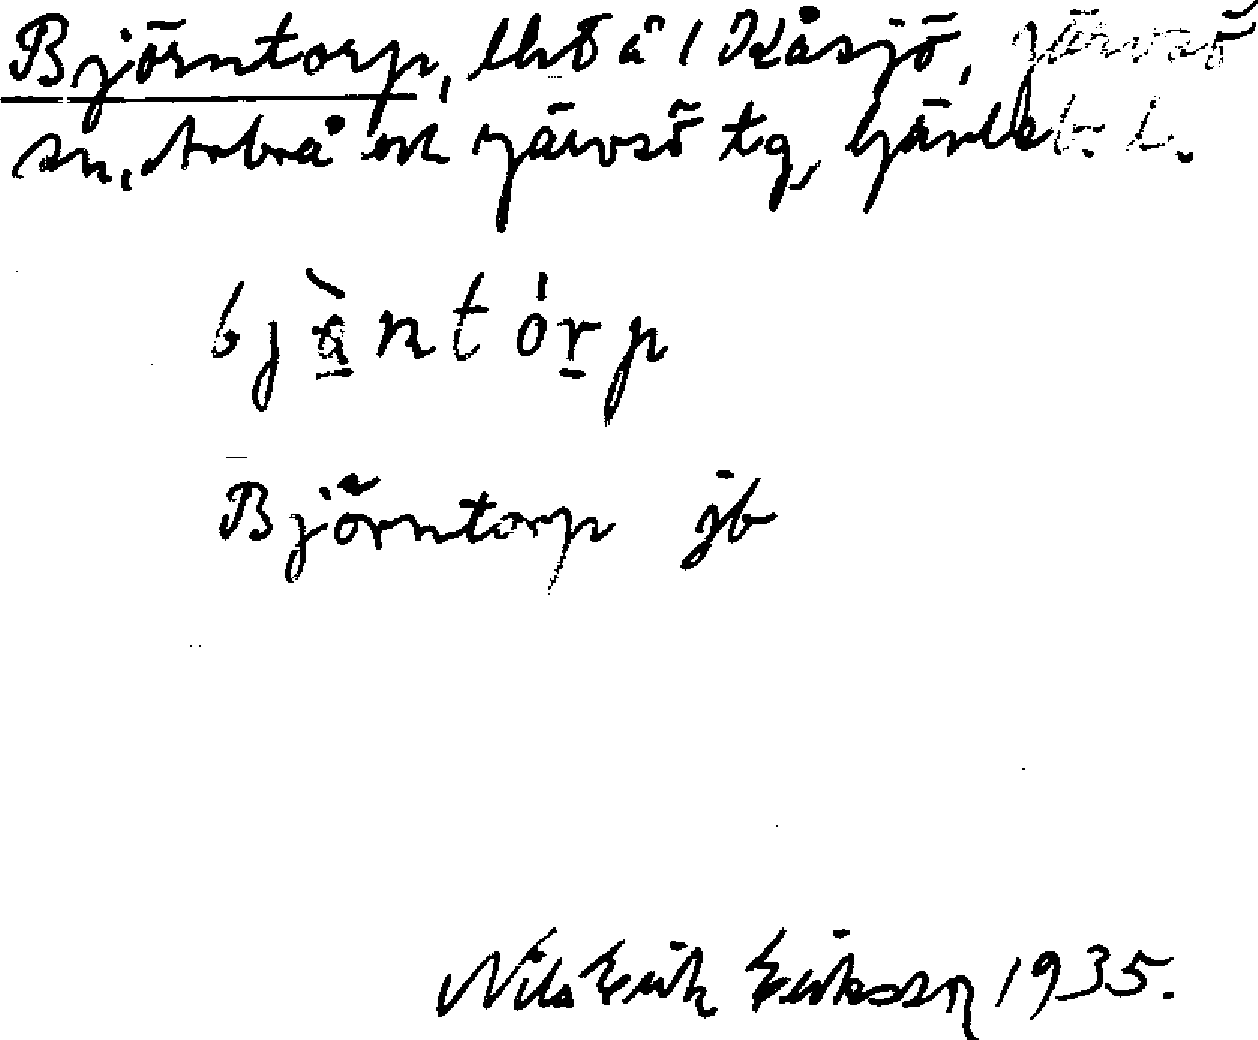 Björntorp, lhd å 1 Kåsjö, Järvsö
sn, Arbrå och Järvsö tg, Gävleb. l.
bjäntórp
Björntorp jb
Nils Erik Eriksson 1935.